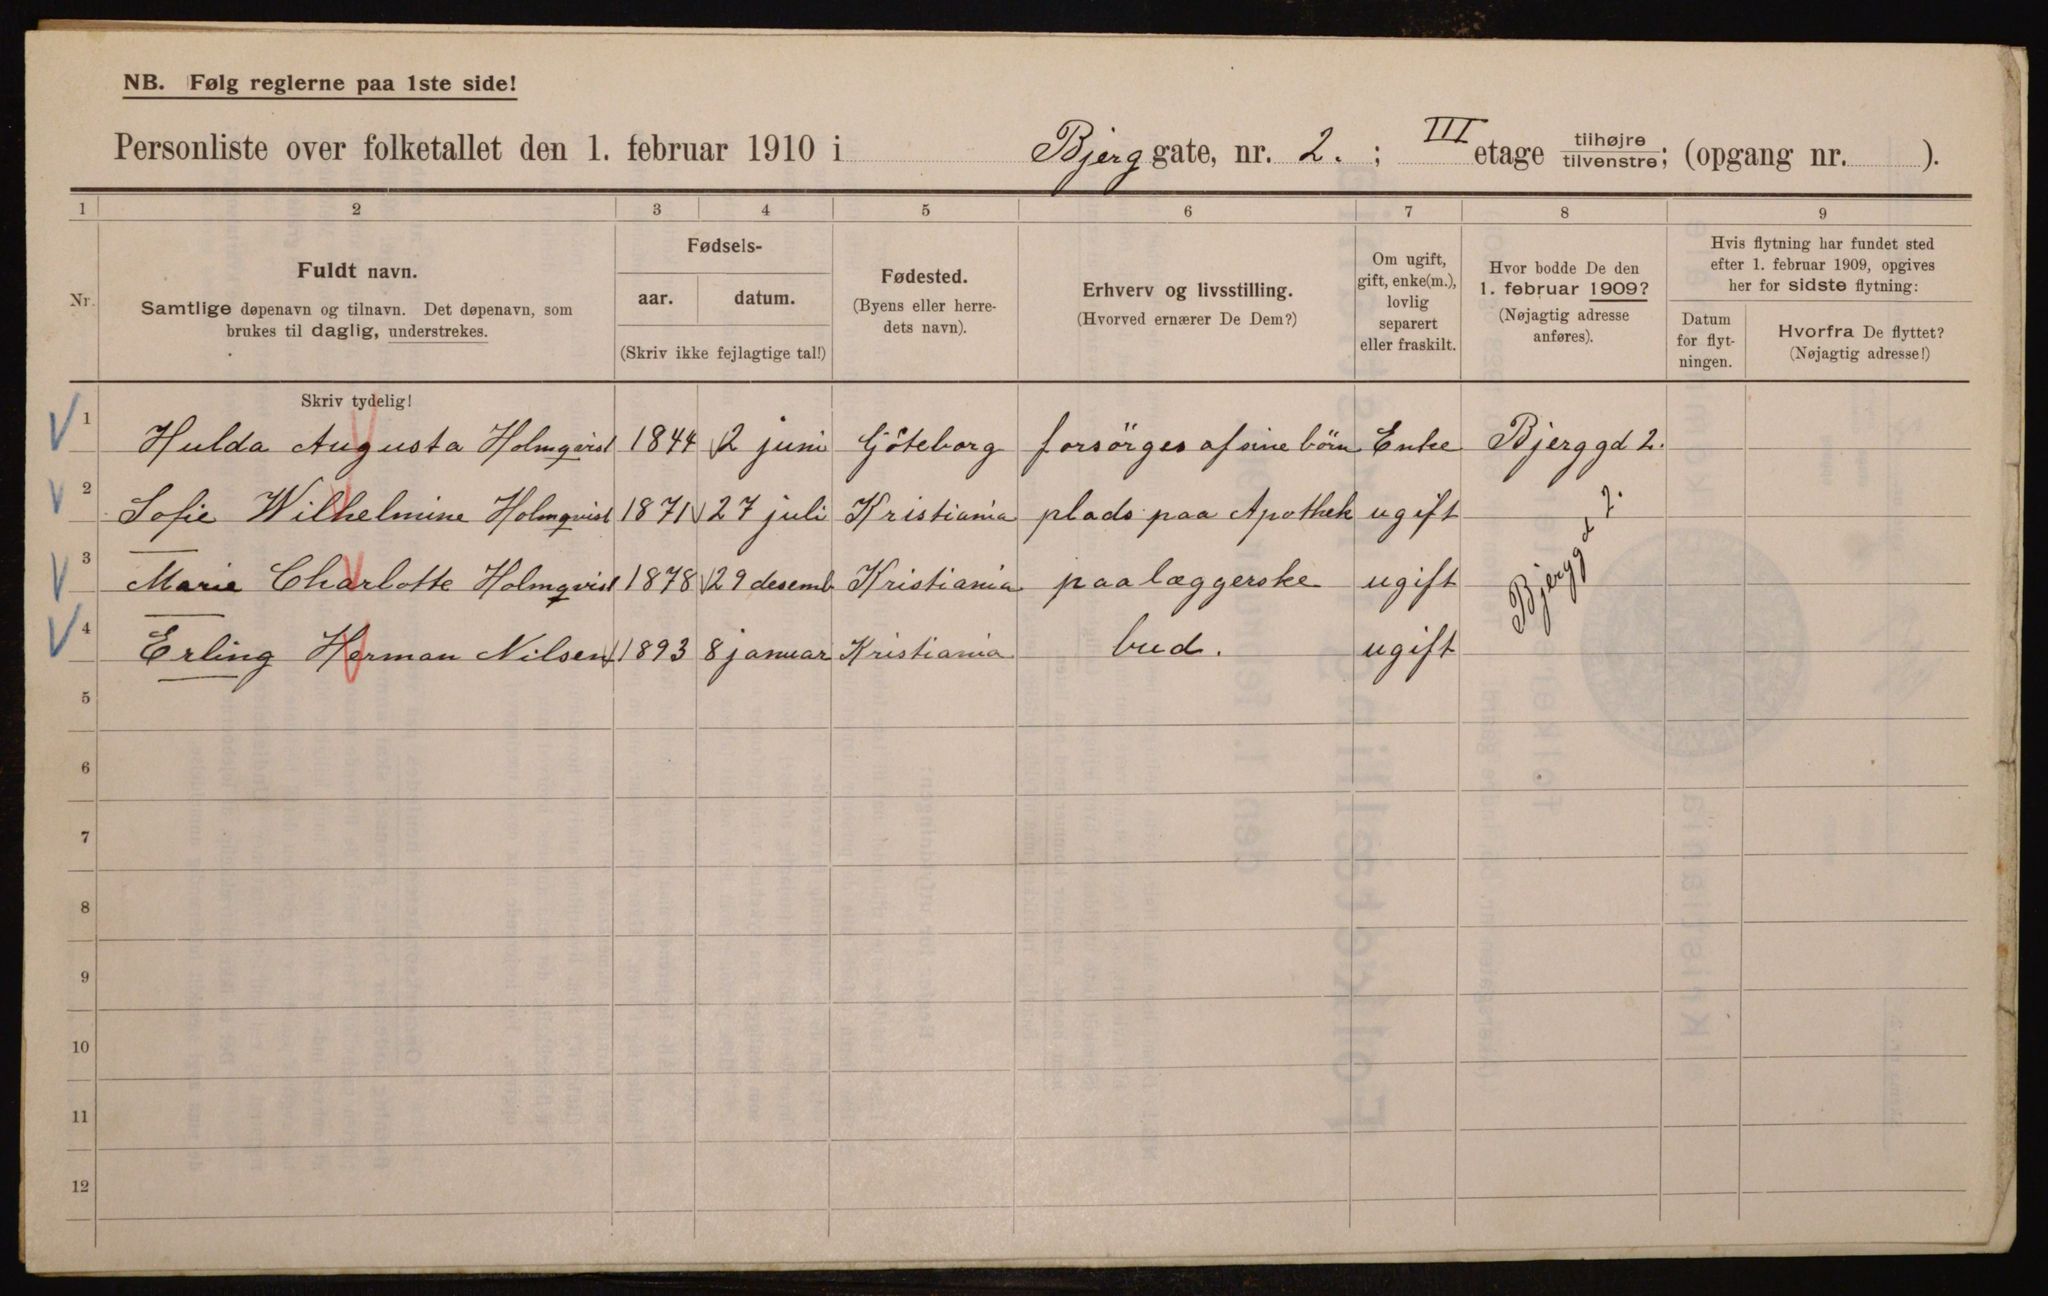 NB. Følg reglerne paa 1ste side!
Personliste over folketallet den 1. februar 1910 i Bjerg gate, nr. 2. ; III etage tilhøjre tilvenstre; (opgang nr. ).
1 2 3 4 5 6 7 8 9
Nr.
Fuldt navn.
Samtlige døpenavn og tilnavn. Det døpenavn, som
brukes til daglig, understrekes.
Fødsels-
aar. datum.
(Skriv ikke fejlagtige tal!)
Fødested.
(Byens eller herre-
dets navn).
Erhverv og livsstilling.
(Hvorved ernærer De Dem?)
Om ugift,
gift, enke(m.),
lovlig
separert
eller fraskilt.
Hvor bodde De den
1. februar 1909?
(Nøjagtig adresse
anføres).
Hvis flytning har fundet sted
efter 1. februar 1909, opgives
her for sidste flytning:
Datum
for flyt-
ningen.
Hvorfra De flyttet?
(Nøjagtig adresse!)
Skriv tydelig!
1 Hulda Augusta Holmqvist 1844 2 juni Göteborg forsörges af sine börn Enke Bjerggd 2.
2 Sofie Wilhelmine Holmqvist 1871 27 juli Kristiania plads paa Apothek ugift Bjerggd 2.
3 Marie Charlotte Holmqvist 1878 29 desemb Kristiania paalæggerske ugift
4 Erling Herman Nilsen 1893 8 januar Kristiania bud. ugift
5
6
7
8
9
10
11
12